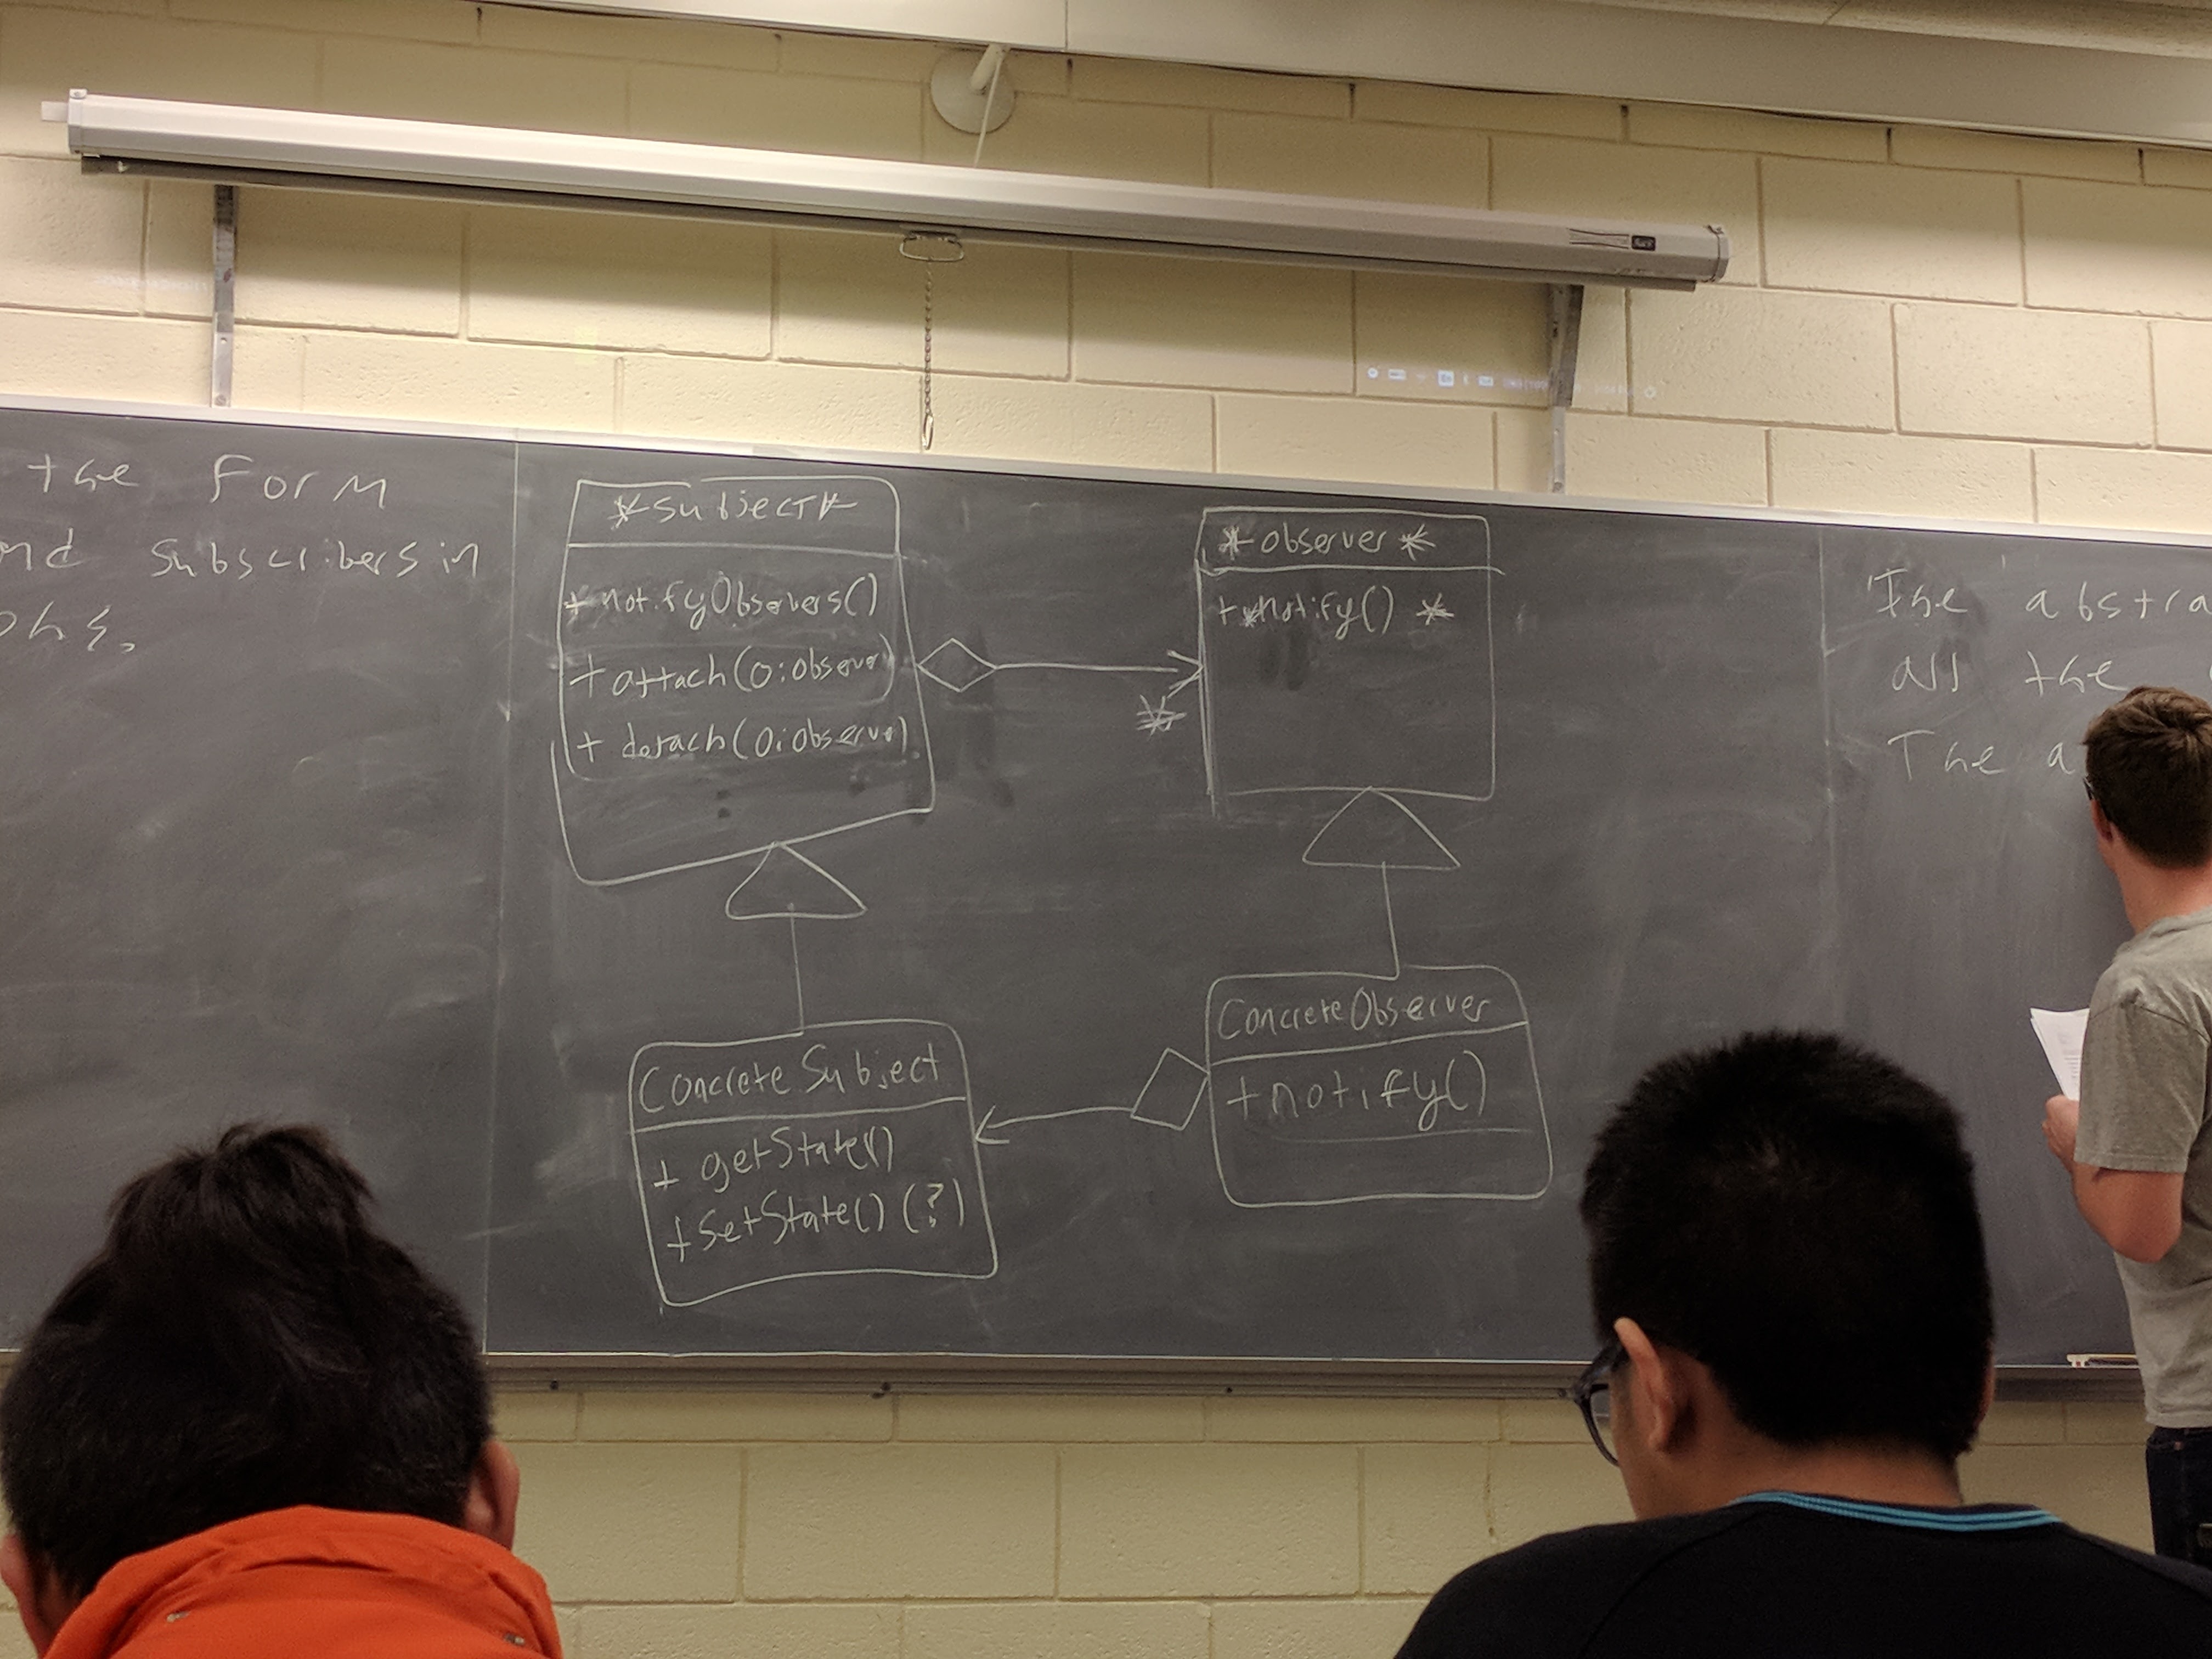 the Form
nd Subscribers in
*Subject*
+ notifyObservers()
+ attach(o:observer)
+ detach(o:observer)
*
*observer*
+ *notify() *
ConcreteSubject
+ getState()
+ SetState() (?)
ConcreteObserver
+ notify()
The abstra
all the
The a